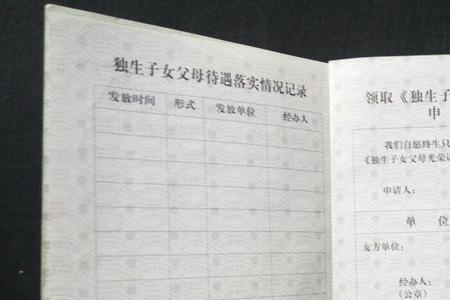 独生子女父母待遇落实情况记录
发放时间 形式 发放单位 经办人
领取《独生子
申
我们自愿终生只
《独生子女父母光荣证
申请人：
单 位
女方单位：
经办人：
（公章）